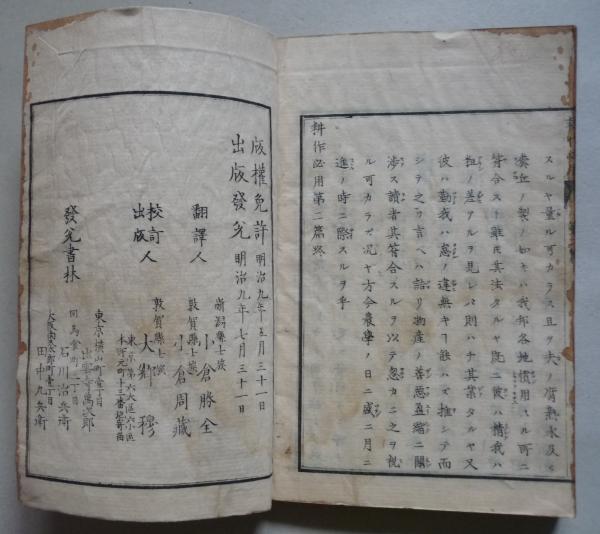 スルヤ量ル可カラス且ツ夫ノ
製ノ如キハ我邦各地慣用スル所ニ
符合スト雖𪜈其法タルヤ既ニ彼ハ精我ハ
粗ノ差アルヲ見レハ則ハチ其業タルヤ又
彼ハ勤我ハ惰ノ違無キ能ハズ推シテ而
シテ之ヲ言ヘハ諸リ物産ノ善悪盈縮ニ關
渉ス讀者其符合スルヲ以テ忽カニ之ヲ視
ル可カラズ况ヤ方今農學ノ日ニ盛ニ月ニ
進ノ時ニ際スルヲ乎
耕作必用第二篇終
版權免許 明治九年五月三十一日
出版發兌 明治九年七月三十一日
翻譯人
新潟縣士族
小倉勝全
敦賀縣士族
小倉周藏
校訂人
出版
敦賀縣士族
大鄉穆
東京第六大區六小區
本町元町十三番地寄畱
發兌書林
東京横山町壹丁目
出雲寺萬次郎
同馬喰町二丁目
石川治兵衛
大阪南太郎町壹丁目
田中九兵衛